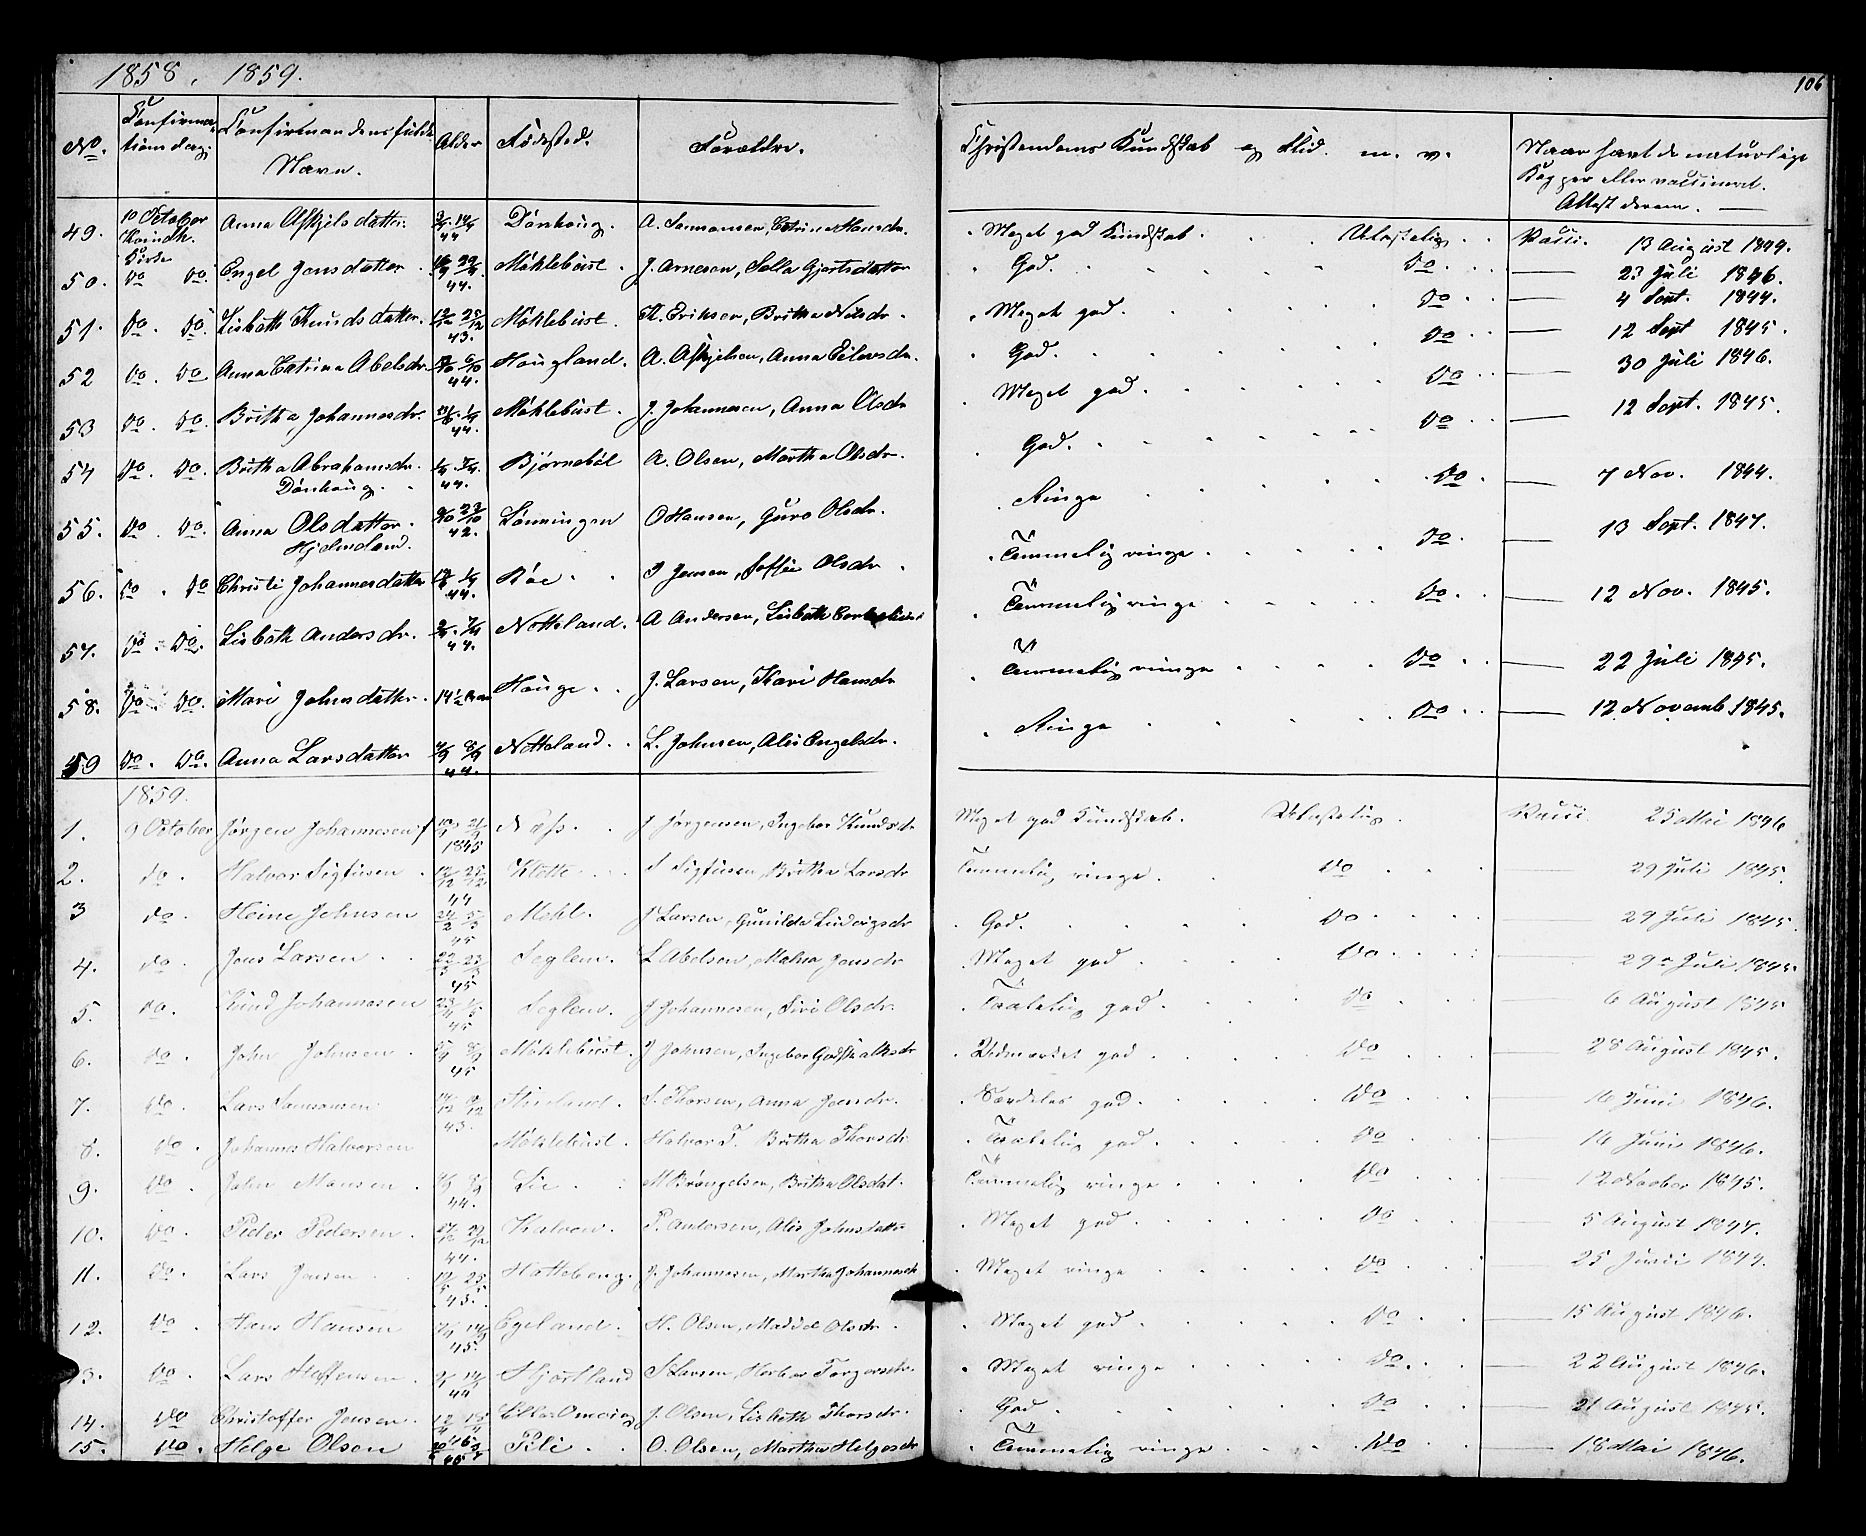 1858, 1859.
106
No. Confirma-tions dag. Confirmandens fulde Navn. Alder Födested. Forældre. Christendoms Kundskab og Flid. m. v. Naar havt de naturlige Kopper eller vaccineret. Attest derom.
49. 10 October Kvindh. Kirke Anna Askjelsdatter. 44 Dönhoug. A. Samonsen, Catrina Hansdr. Meget god Kundskab. Ulastelig. Vacci. 13 August 1844.
50. do do. Engel Jonsdatter 44. Möklebust. J. Arnesen, Salla Gjertsdatter God. do. 23 Juli 1846.
51. do. do. Lisbeth Knudsdatter. 43. Möklebust. K. Eriksen, Britha Nilsdr. Meget god. do 4 Sept. 1844.
52 do. do Anna Catrina Abelsdr. 44. Hougland. A. Askjelsen, Anna Eilersdr. God. do 12 Sept 1845.
53 do. do. Britha Johannesdr. 44. Möklebust. J. Johannesen, Anna Olsdr Meget god. do 30 Juli 1846.
54 do. do. Britha Abrahamsdr. Dönhoug. 44. Bjørneböl A. Olsen, Martha Olsdr. God. do 12 Sept. 1845.
55. do. do. Anna Olsdatter. Hjelmeland. 42. Lönningen O Hansen, Guro Olsdr. Ringe do. 7 Nov. 1844.
56. do. do Christi Johannesdatter 44. Böe J Jensen, Soffie Olsdr. Temmelig ringe. do. 13 Sept. 1847.
57. do. do. Lisbeth Andersdr. 44. Netteland. A Andersen, Lisbeth Temmelig ringe do. 12 Nov. 1845.
58. do. do. Mari Johnsdatter. 14½ Hauge. J. Larsen, Kari Hansdr Temmelig ringe do. 22 Juli 1845.
59 do. do. Anna Larsdatter 44. Netteland. L. Johnsen, Alis Engelsdr. Ringe do. 12 Novemb. 1845.
1859.
1. 9 October Jörgen Johannesen 1845 Næss. J Jörgensen, Ingebor Knudsdr Meget god Kundskab. Ulastelig. Vacci. 25 Mai 1846
2. do. Halvor Sigfusen 44 Klette S Sigfusen, Britha Larsdr Temmelig ringe. do 29 Juli 1845.
3 do. Heine Johnsen 45 Mehl. J Larsen, Gunilda Ludvigsdr God. do 29 Juli 1845.
4. do. Jens Larsen 45 Seglem. L Abelsen, Malna Jensdr Meget god do 29 Juli 1845.
5. do. Knud Johannesen 45 Seglem. J Johannesen, Siri Olsdr. Taalelig god. do 6 August 1845
6. do. John Johnsen 45 Möklebust. J Johnsen, Ingebor Godskalksdr Udmærket god do 28 August 1845.
7. do. Lars Samsonsen 43. S. Thorsen, Anna Jensdr. Særdeles god. do 16 Juni 1846.
8. do. Johannes Halvorsen Möklebust. Halvor T. Britha Thorsdr Taalelig god. do 16 Juni 1846.
9. do. John Monsen 44. Lie M Brøngelsen, Britha Olsdat. Temmelig ringe do 12 Novber 1845.
10. do. Peder Pedersen. 44. Kalven. P. Andersen, Alis Johnsdatter Meget god. do 5 August 1847.
11. do. Lars Jensen 45. Hatteberg. J. Johannesen, Martha Johannesdr Meget ringe do 25 Juni 1847.
12. do. Hans Hansen 45. Egeland. H. Olsen, Maddel Olsdr. Meget god do 15 August 1846.
13. do. Lars Steffensen. 44 Hjortland S Larsen, Herbor Torgersdr. Meget ringe do. 22 August 1846.
14. do Christoffer Jensen. J. Olsen, Lisbeth Thorsdr. God do 21 August 1845.
15. do. Helge Olsen 45 Tili O. Olsen, Martha Helgesdr Temmelig ringe do 18 Mai 1846.